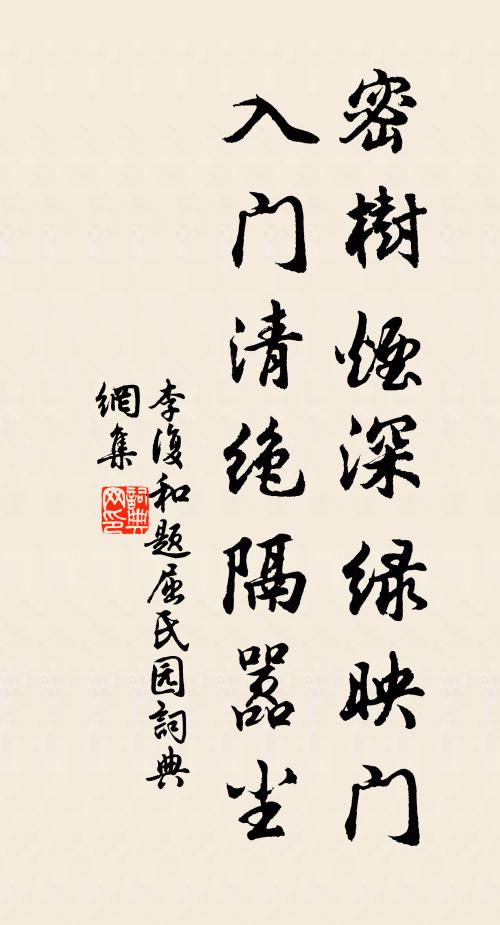 密樹煙深緑映门
入门清绝隔嚣尘
李復和題屈氏园詞典
網集
詞典网印